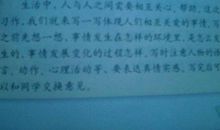 生活中，人与人之间需要相互关心、帮助。这次
习作，我们就来写一写体现人们相互关爱的事情。
之前先想一想，事情发生在怎样的环境里，是怎么发
生的，事情发展变化的过程怎样，写时注意人物的语
言、动作、心理活动等，要表达真情实感。写完后
以和同学交换意见。